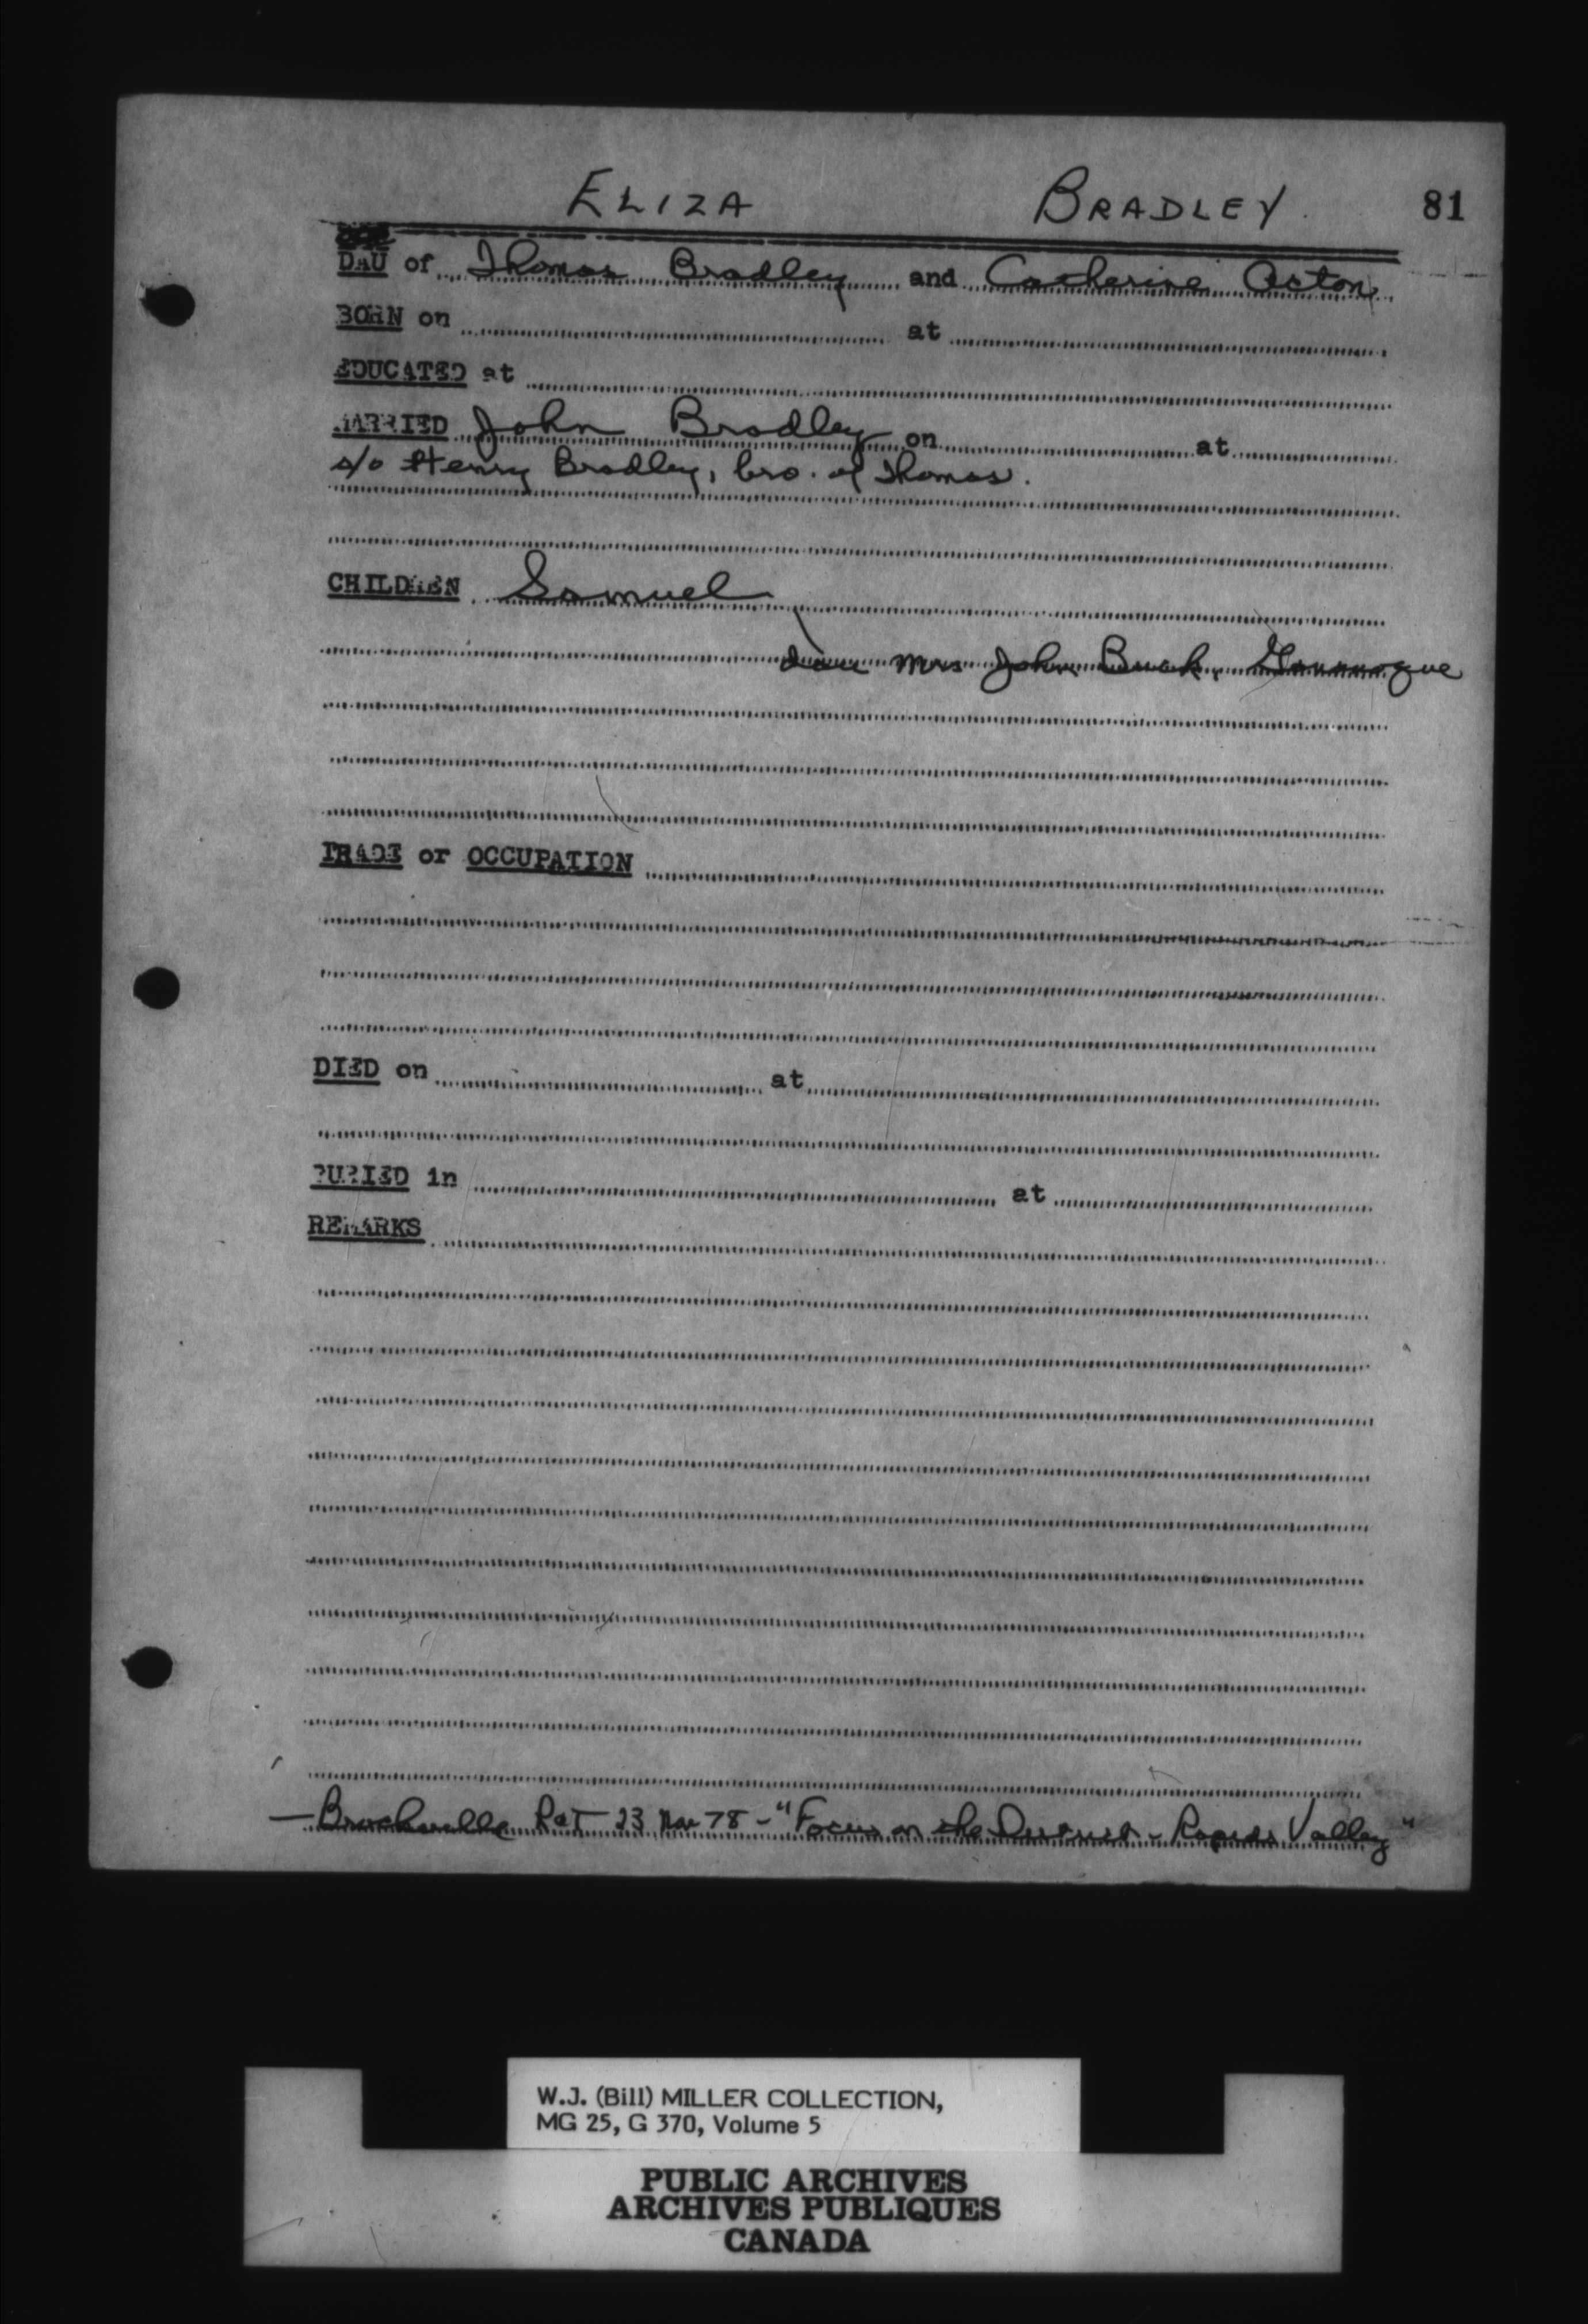 ELIZA BRADLEY 81
DAU of Thomas Bradley and Catherine Acton
BORN on at
EDUCATED at
MARRIED John Bradley on at
s/o Henry Bradley, bro. of Thomas.
CHILDREN Samuel
dau Mrs John Buck, Gananoque
TRADE or OCCUPATION
DIED on at
BURIED in at
REMARKS
— Brockville R&T 23 Mar 78 - "Focus on the District - Rapids Valley"
W.J. (Bill) MILLER COLLECTION,
MG 25, G 370, Volume 5
PUBLIC ARCHIVES
ARCHIVES PUBLIQUES
CANADA